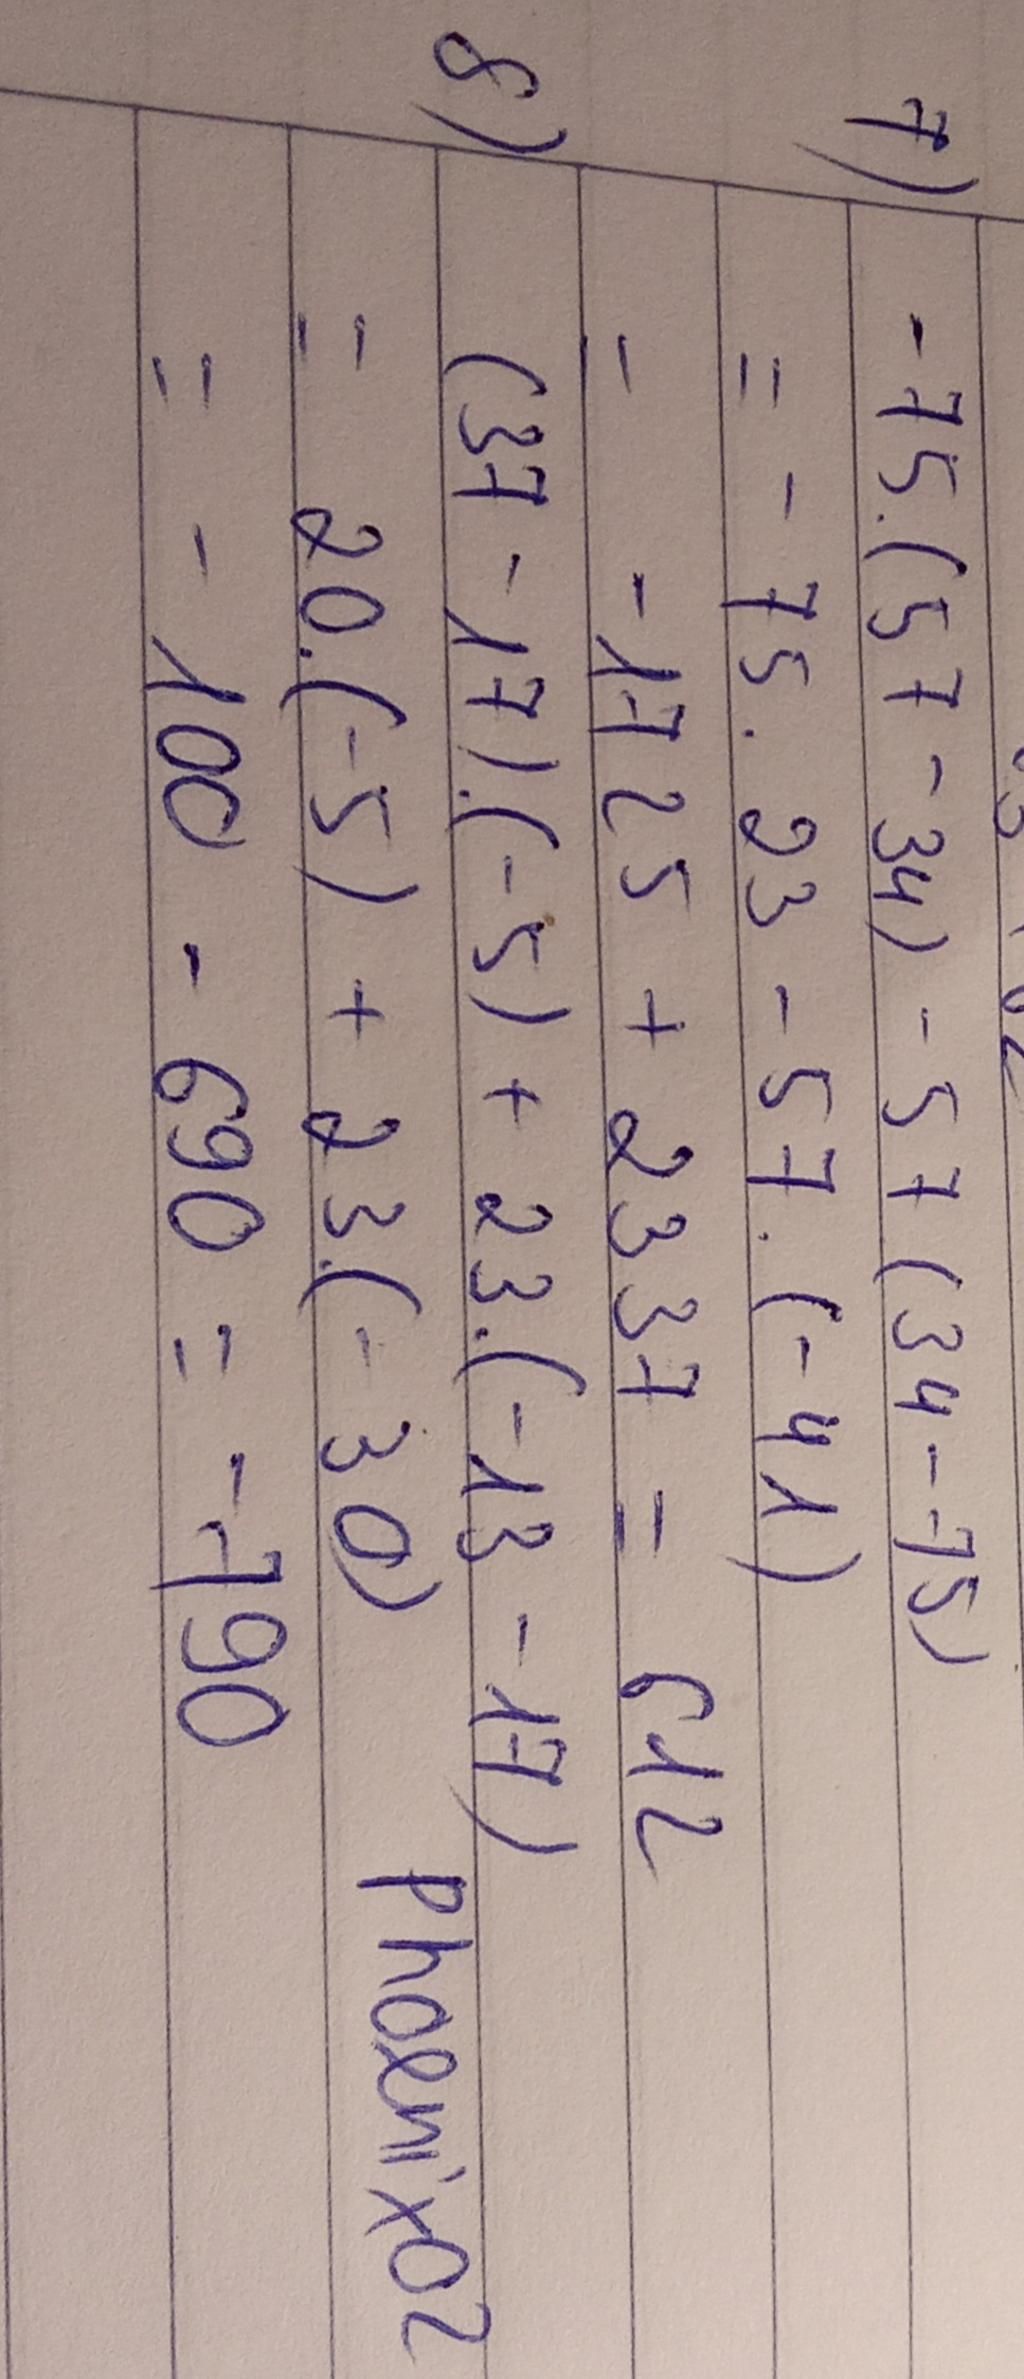 7) -75.(57-34)-57(34-75)
= -75.23-57.(-41)
= -1725+2337=612
8) (37-17).(-5)+23.(-13-17)
= 20.(-5)+23.(-30)
= -100-690=-790
Phoenix02